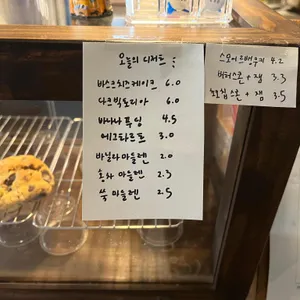 오늘의 디저트 :
바스크치즈케이크 6.0
다크빅토리아 6.0
바나나 푸딩 4.5
에그타르트 3.0
바닐라마들렌 2.0
홍차 마들렌 2.3
쑥 마들렌 2.5
스모어르뱅쿠키 4.2
버터스콘 + 잼 3.3
초코칩스콘 + 잼 3.5